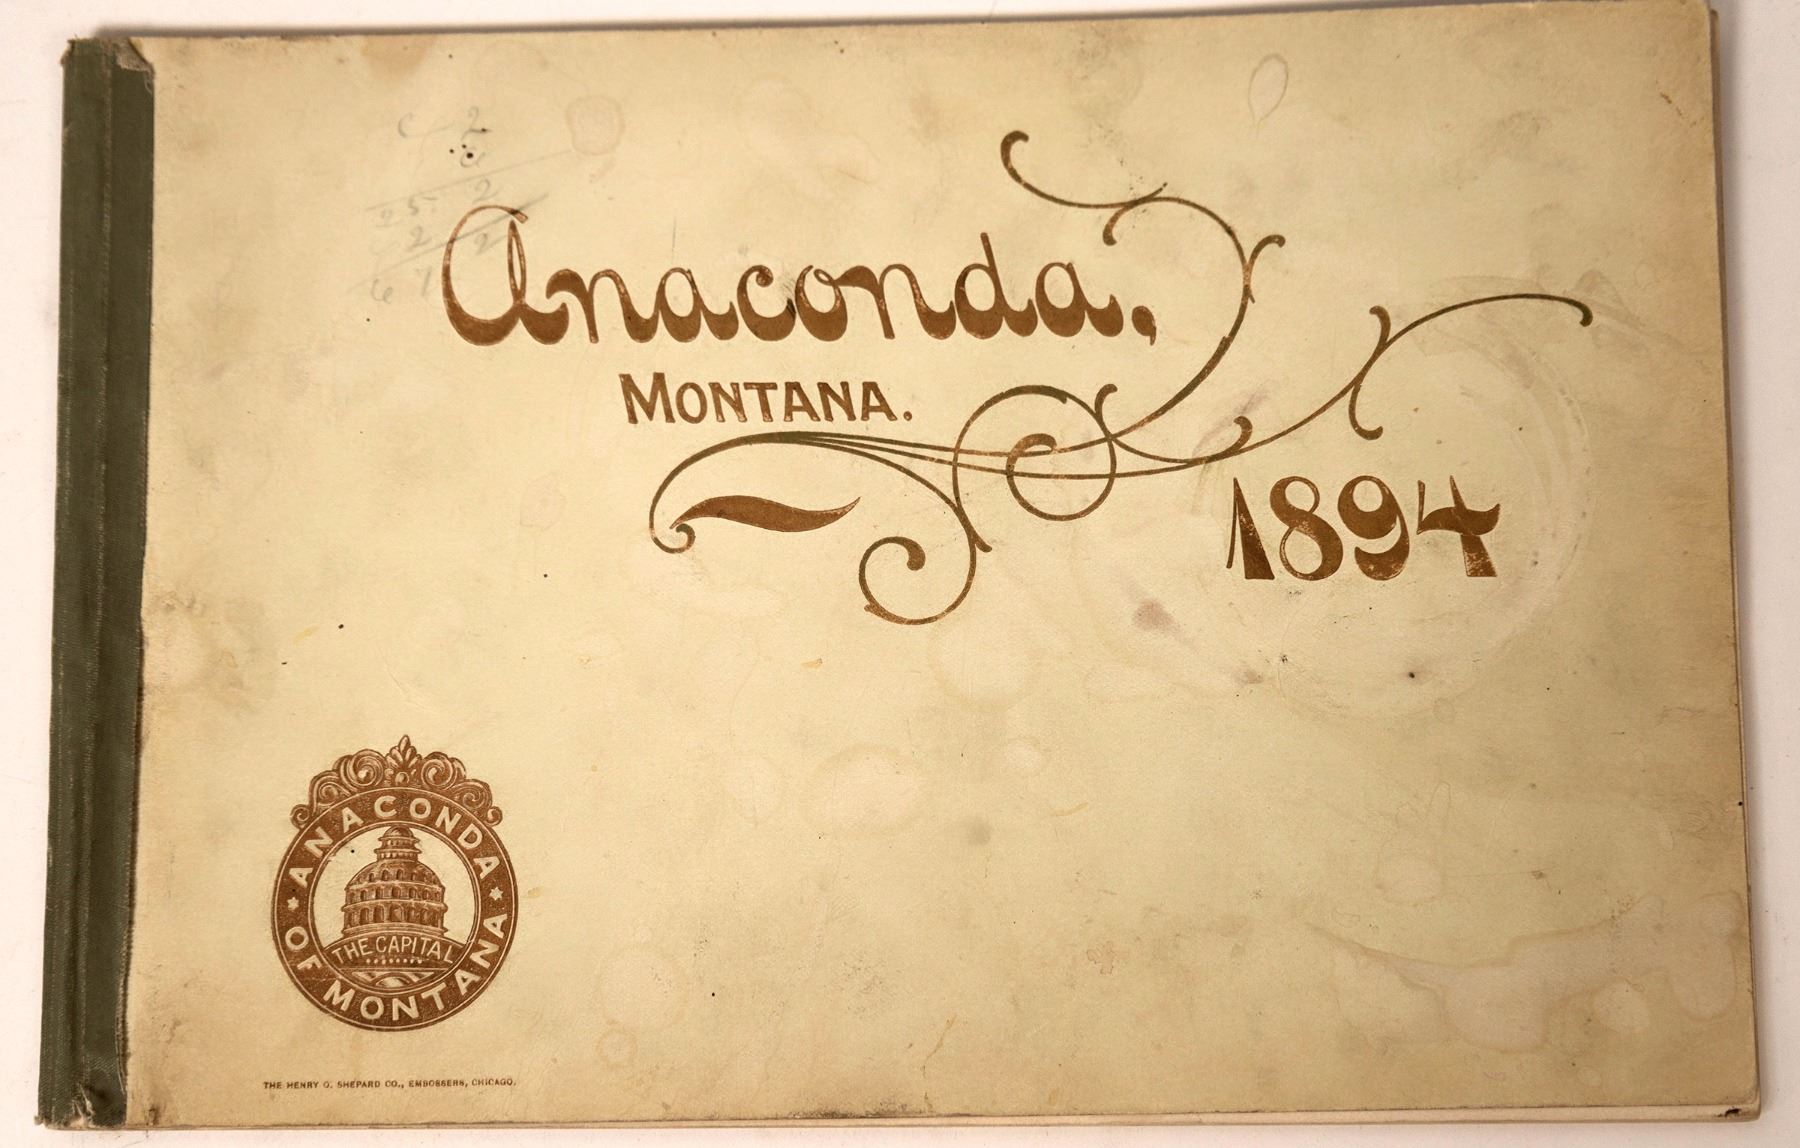 2
2
25
2 2
Anaconda.
MONTANA.
1894
ANACONDA
THE CAPITAL
OF MONTANA
THE HENRY O. SHEPARD CO., EMBOSSERS, CHICAGO.